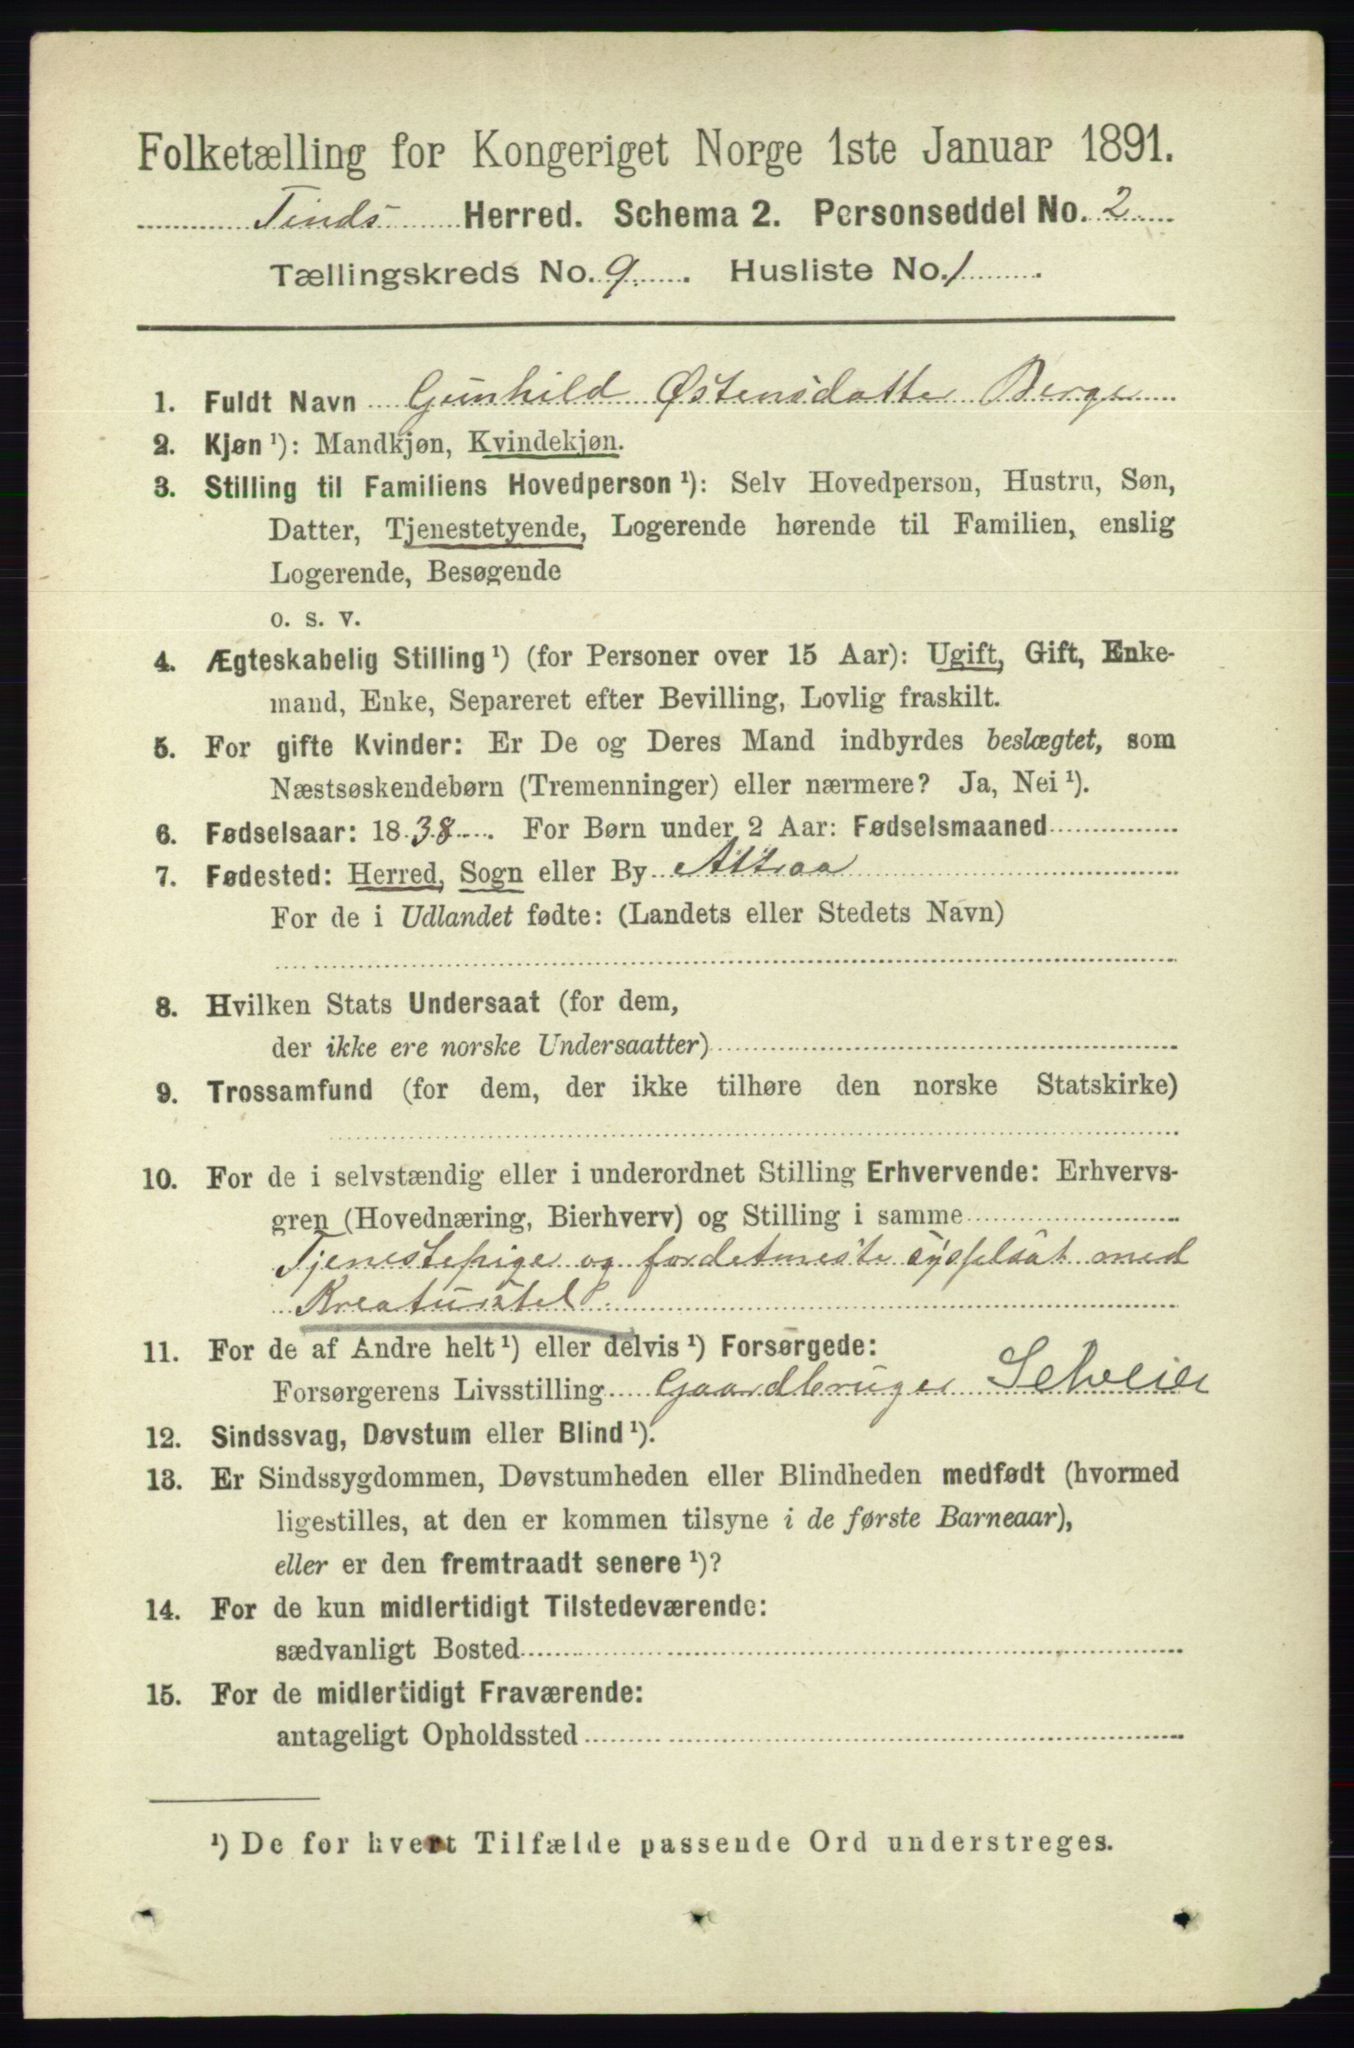 Folketælling for Kongeriget Norge 1ste Januar 1891.
Tinds Herred. Schema 2. Personseddel No. 2
Tællingskreds No. 9. Husliste No. 1.
1. Fuldt Navn Gunhild Østensdatter Berge
2. Kjøn ¹): Mandkjøn, Kvindekjøn.
3. Stilling til Familiens Hovedperson ¹): Selv Hovedperson, Hustru, Søn,
Datter, Tjenestetyende, Logerende hørende til Familien, enslig
Logerende, Besøgende
o. s. v.
4. Ægteskabelig Stilling ¹) (for Personer over 15 Aar): Ugift, Gift, Enke-
mand, Enke, Separeret efter Bevilling, Lovlig fraskilt.
5. For gifte Kvinder: Er De og Deres Mand indbyrdes beslægtet, som
Næstsøskendebørn (Tremenninger) eller nærmere? Ja, Nei ¹).
6. Fødselsaar: 1838. For Børn under 2 Aar: Fødselsmaaned
7. Fødested: Herred, Sogn eller By Attraa
For de i Udlandet fødte: (Landets eller Stedets Navn)
8. Hvilken Stats Undersaat (for dem,
der ikke ere norske Undersaatter)
9. Trossamfund (for dem, der ikke tilhøre den norske Statskirke)
10. For de i selvstændig eller i underordnet Stilling Erhvervende: Erhvervs-
gren (Hovednæring, Bierhverv) og Stilling i samme
Tjenestepige og fordetmeste sysselsat med
Kreaturstel
11. For de af Andre helt ¹) eller delvis ¹) Forsørgede:
Forsørgerens Livsstilling Gaardbruger Selveier
12. Sindssvag, Døvstum eller Blind ¹).
13. Er Sindssygdommen, Døvstumheden eller Blindheden medfødt (hvormed
ligestilles, at den er kommen tilsyne i de første Barneaar),
eller er den fremtraadt senere ¹)?
14. For de kun midlertidigt Tilstedeværende:
sædvanligt Bosted
15. For de midlertidigt Fraværende:
antageligt Opholdssted
¹) De for hvert Tilfælde passende Ord understreges.